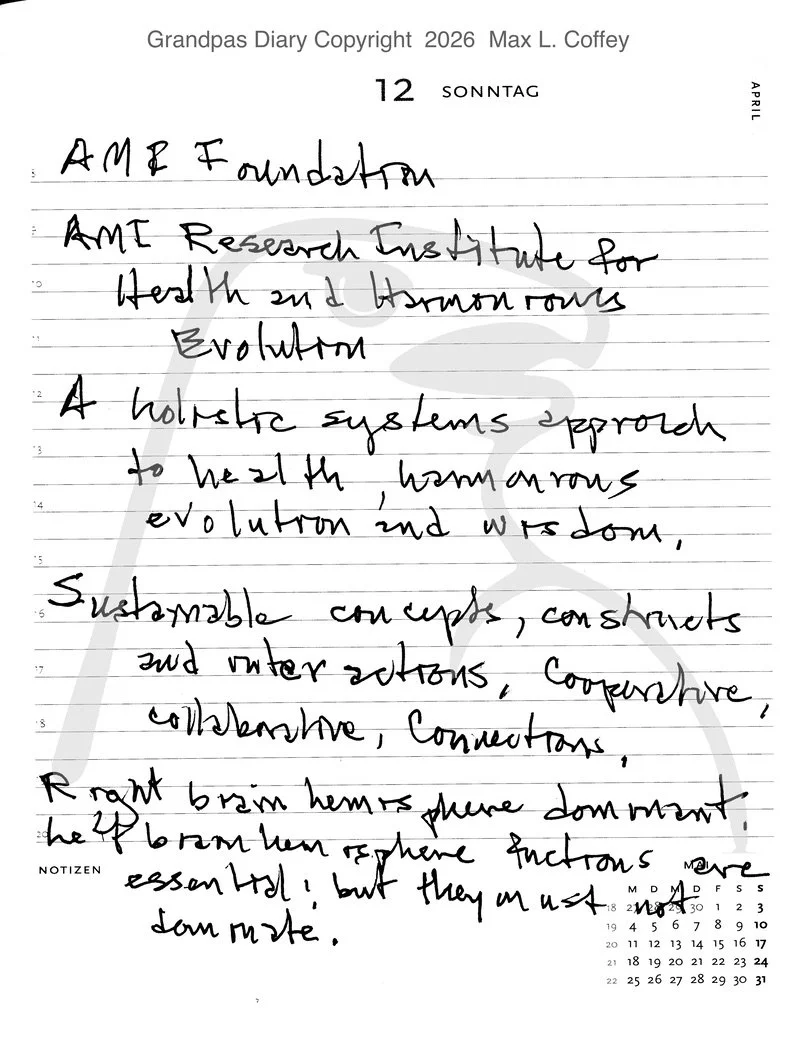 Grandpas Diary Copyright 2026 Max L. Coffey
12 SONNTAG
APRIL
AMI Foundation
AMI Research Institute for
Health and Harmonious
Evolution
A holistic systems approach
to health, harmonious
evolution and wisdom,
Sustainable concepts, constructs
and inter actions, Cooperative,
collaborative, Connections,
Right brain hemisphere dominant.
left brain hemisphere functions are
essential; but they must not
dominate.
8
9
10
11
12
13
14
15
16
17
18
20
NOTIZEN
MAI
M D M D F S S
18 27 28 29 30 1 2 3
19 4 5 6 7 8 9 10
20 11 12 13 14 15 16 17
21 18 19 20 21 22 23 24
22 25 26 27 28 29 30 31